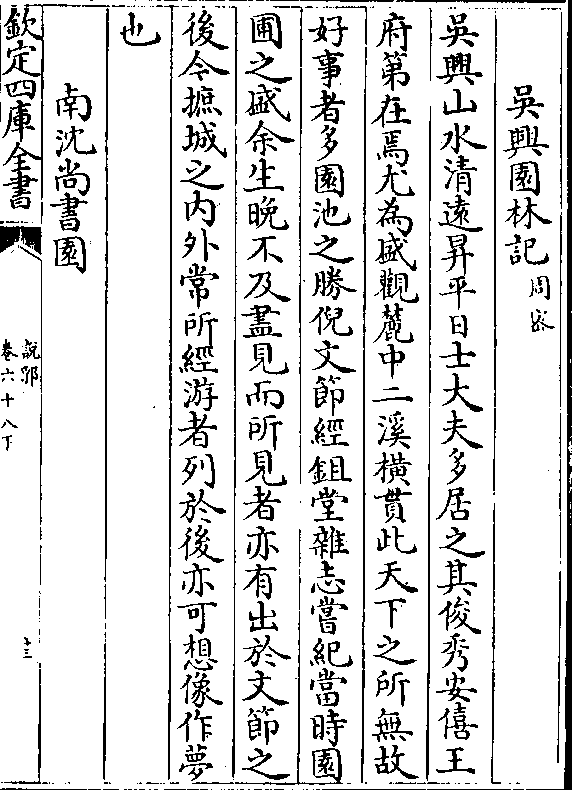 吳興園林記 周密
吳興山水清遠昇平日士大夫多居之其俊秀安僖王
府第在焉尤為盛觀麓中二溪橫貫此天下之所無故
好事者多園池之勝倪文節經鉏堂雜志嘗紀當時園
圃之盛余生晚不及盡見而所見者亦有出於文節之
後今摭城之内外常所經游者列於後亦可想像作夢
也
南沈尚書園
欽定四庫全書
說郛
卷六十八下
十三